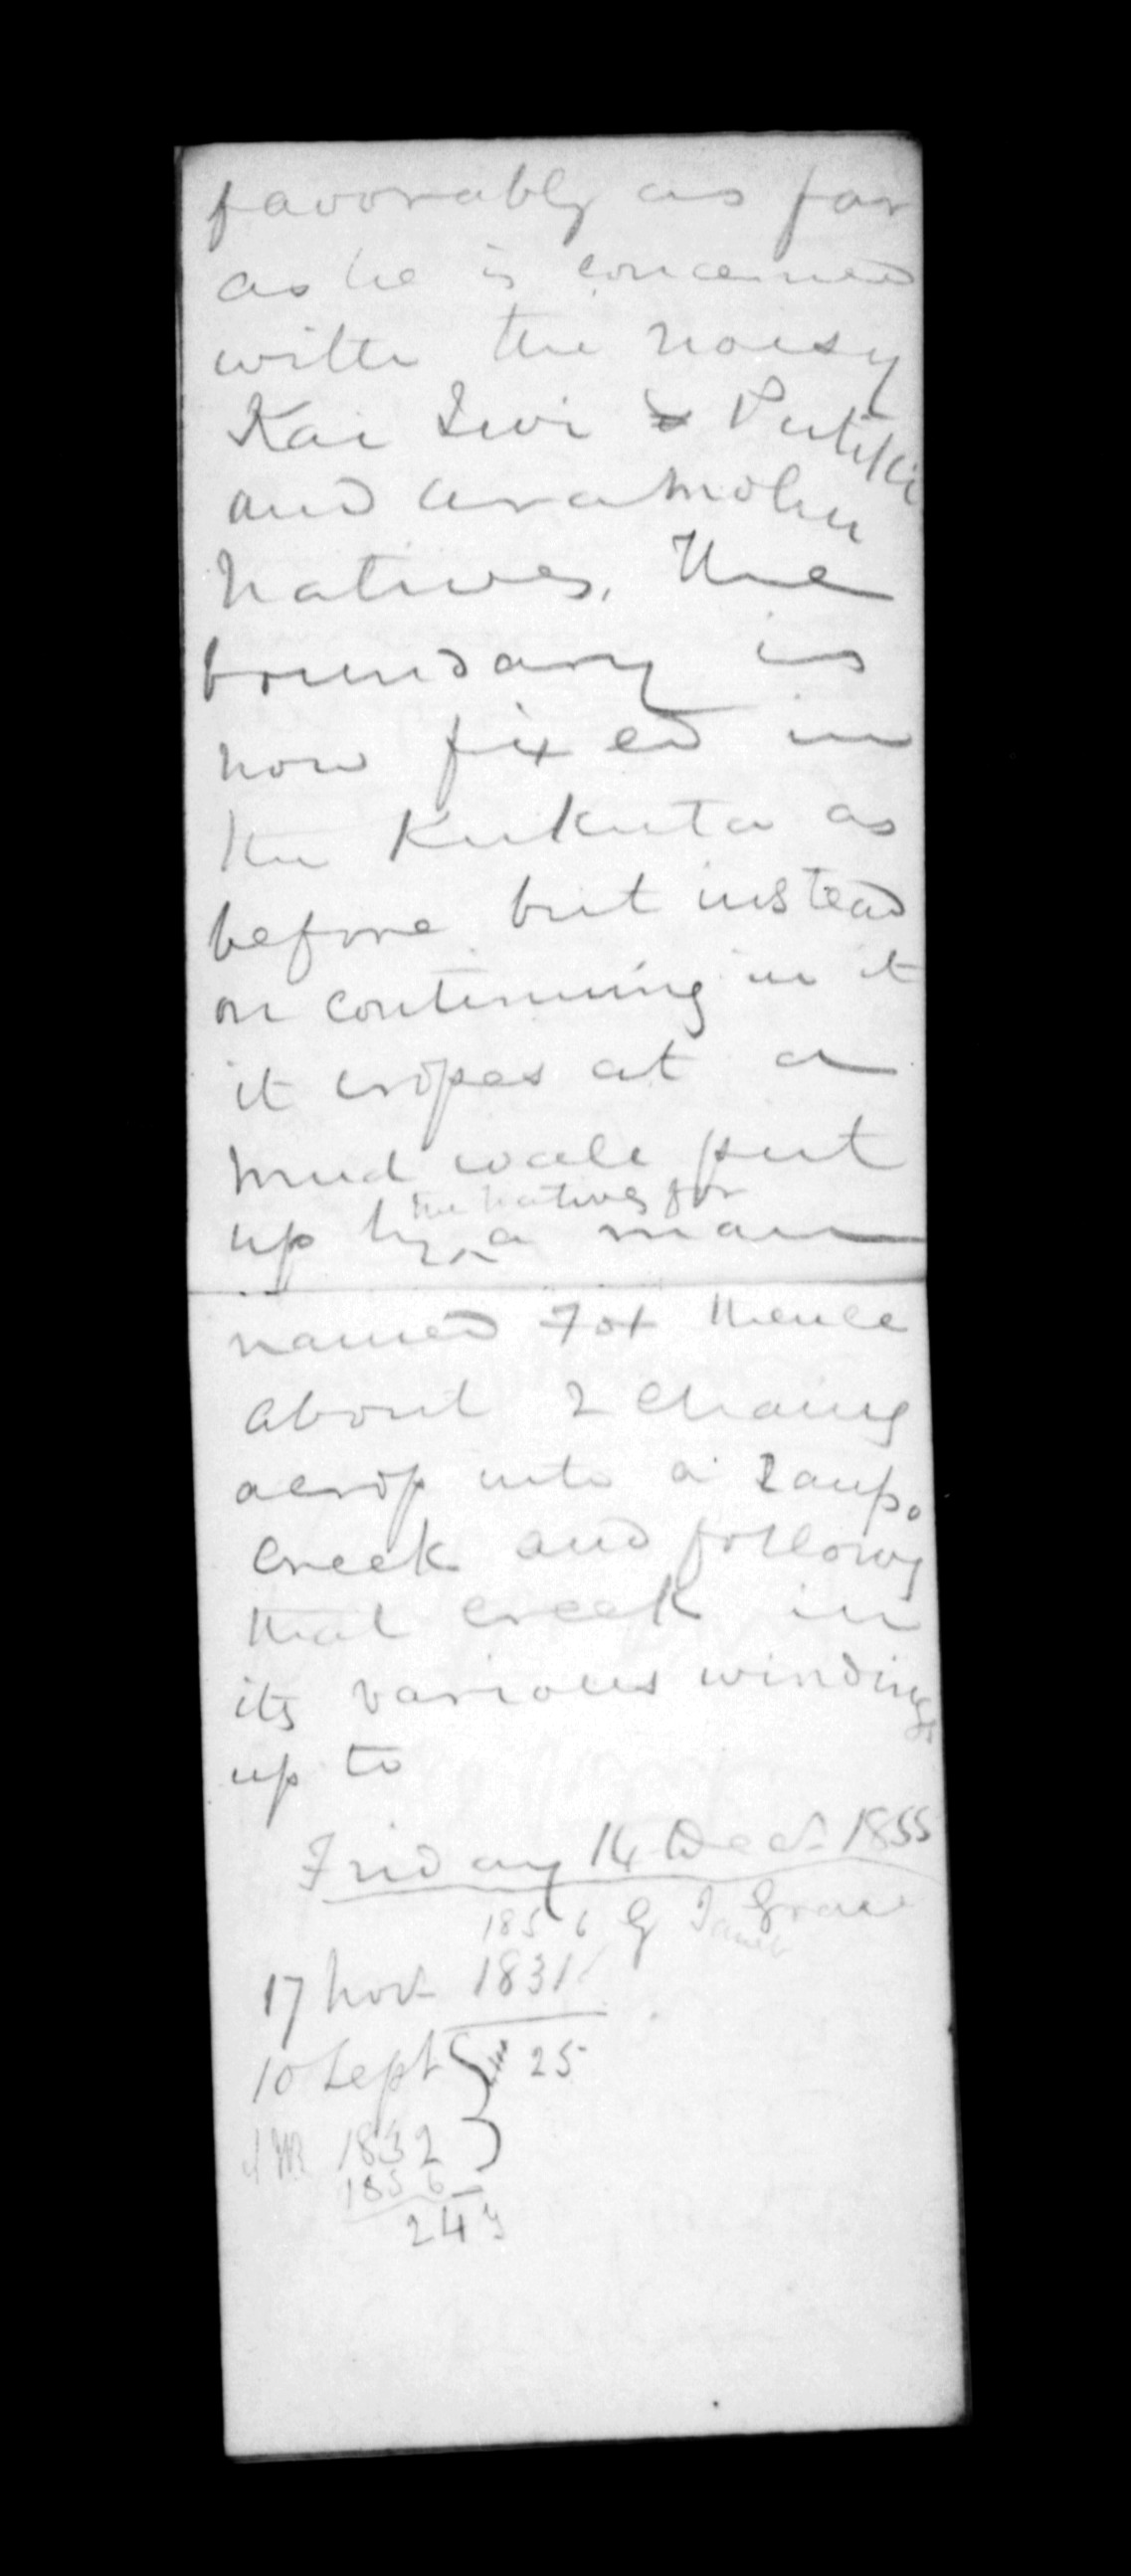 favorably as far
as he is concerned
with the noisy
Kai Iwi & Putiki
and Aramohu
natives. The
boundary is
now fixed in
the Kukuta as
before but instead
on continuing in it
it cropes at a
mud wall put
the natives for
up by a man
named Fox thence
about 2 chains
acrop into a raupo
creek and follows
that creek in
its various windings
up to
Friday 14 Decr 1855
1856 G Grace
17 Novr 1831
10 Sept 25
1832
1856
24 y